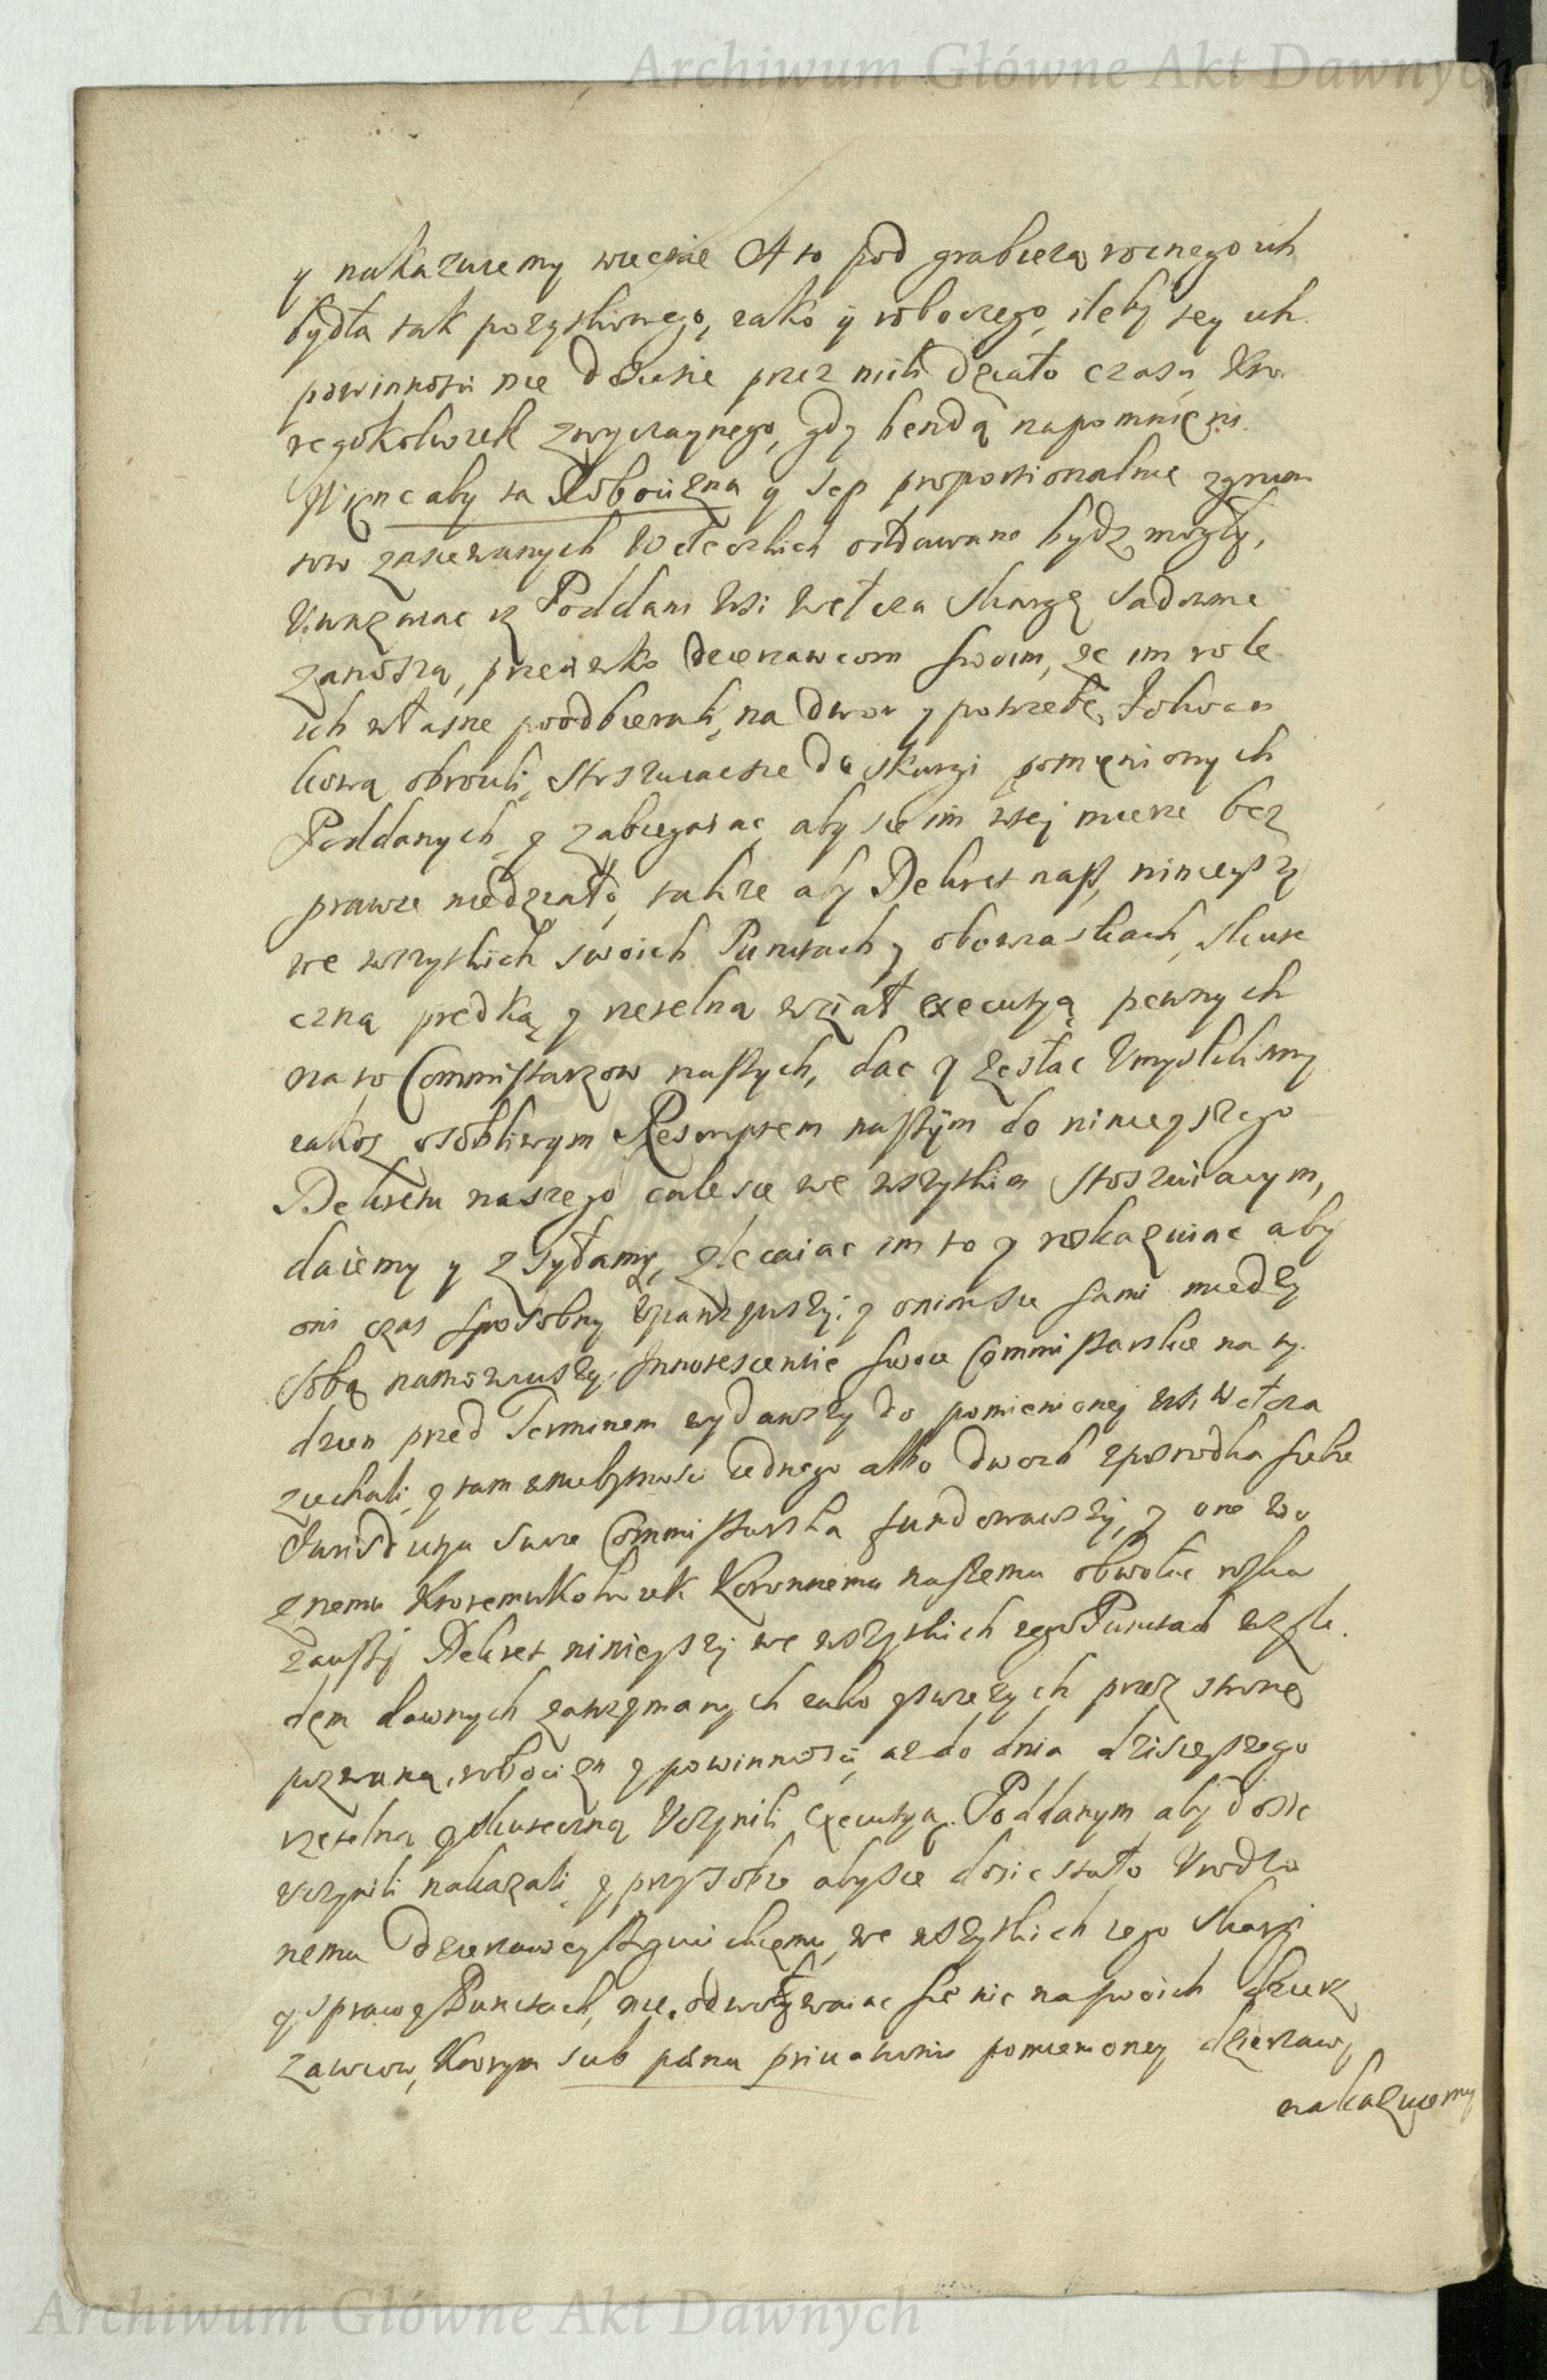 Archiwum Główne Akt Dawnych
y nakazuiemy wiecznie A to pod grabieżą rocznego ich
bydła tak pozytkowego, iako ÿ roboczego, ileby tey ich
powinnosci nie dosic sie przez nich działo czasu kto
regokolwiek zwyczaynego, gdy bendą napomnięni.
Więnc aby ta Robocizna y sep proportionalnie zgrun
tow zasiewanych Wełeckich oddawane bydz mogły,
Uwazaiac iz Poddani Wsi Wełcza skargę sadownie
zanoszą, przeciwko dzierzawcom swoim, ze im role
ich własne poodbierali, na dwor y potrzebę folwar
kową obrocili, stosuiac sie do skargi pomięnionych
Poddanych y zabiegaiąc, aby sie im w tej mierze bez
prawie niedziało, takze aby Dekret nasz ninieyszy
we wszystkich swoich Punctach y obowiaskach, skute
czną prędką y rzetelną wział executyą pewnych
na to Commissarzow naszych, dac y zesłac Umyslilismy
iakoz osobliwym Rescryptem naszym do ninieyszego
Dekretu naszego cale sie we wszystkim stosuiącym,
daiemy y zsyłamy, zlecaiac im to y roskazuiac aby
oni czas sposobny upatrzywszy, y onim sie sami miedzy
sobą namowiwszy, Innotescentie swoie Commissarskie na ty
dzien przed Terminem wydawszy do pomienionej wsi Wełcza
ziechali, y tam w niebytnosci iednego albo dwoch zposrodka siebie
Jurisdictią swoie Commissarską fundowawszy, y one wo
znemu ktoremukolwiek Koronnemu naszemu obwołac roska
zawszy Dekret ninieyszy we wszystkich iego Punctach wzglę
dem dawnych zatrzymanych iako y swiezych przez stronę
pozwaną, robocizn y powinnosci, az do dnia dzisieyszego
rzetelną y skuteczną Uczynili Executyą. Poddanym aby dosic
uczynili nakazali, y przy sobie aby sie dosic stało Urodzo
nemu Dzierzawcy we wszystkich iego skargi
y sprawy Punctach, nie odwoływaiac sie nic na swoich dzier
zawcow, ktorym sub pæna priuationis pomienioney dzierzawy
nakazuiemy
Archiwum Główne Akt Dawnych